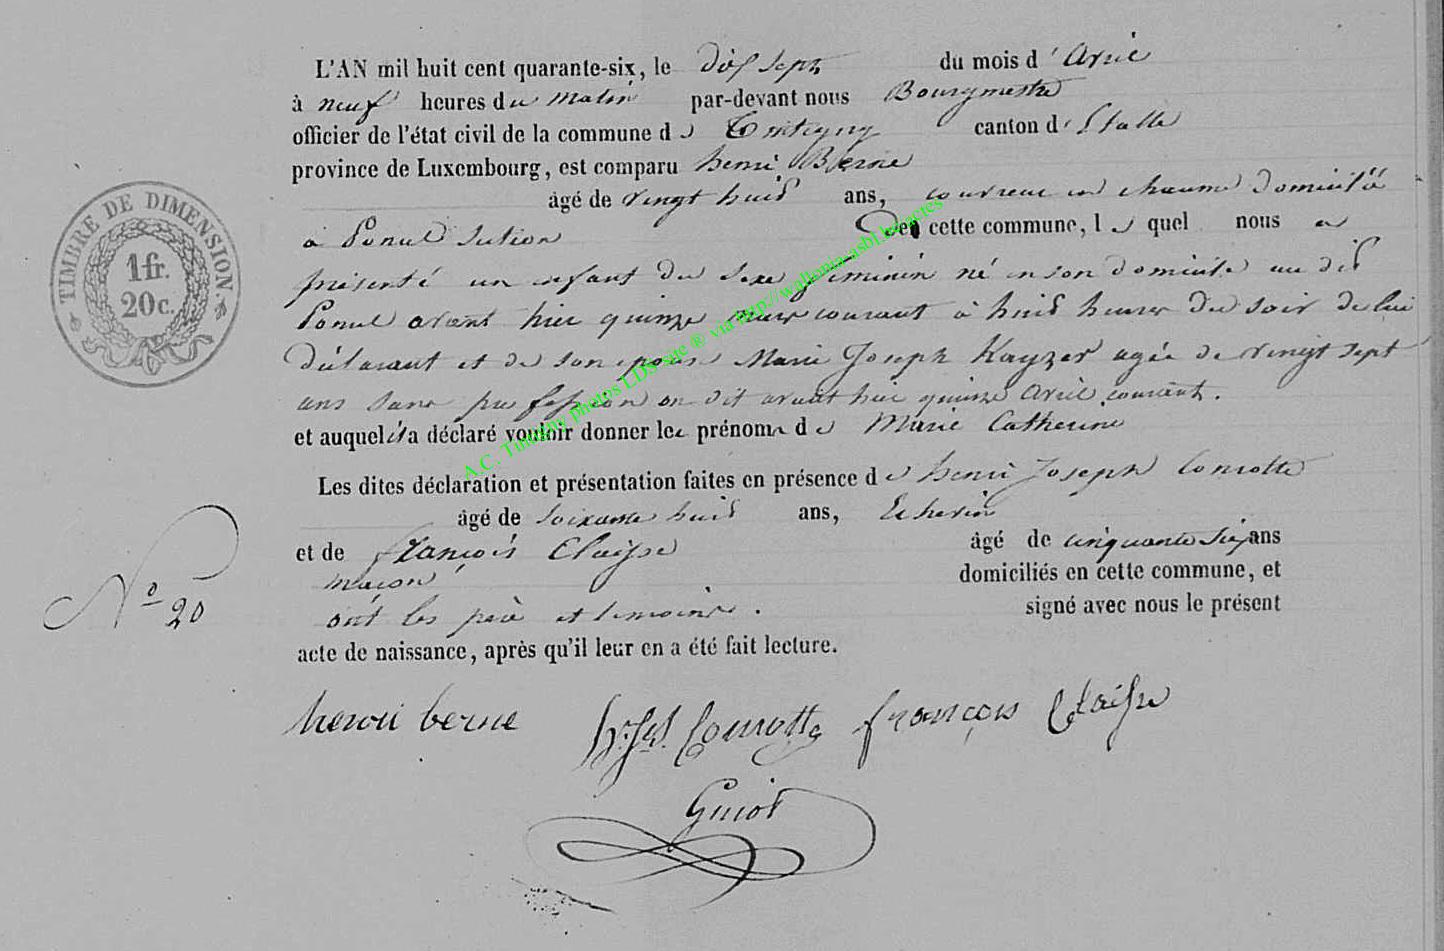 L'AN mil huit cent quarante-six, le dix sept du mois d'Avril
à neuf heures du matin par-devant nous Bourgmestre
officier de l'état civil de la commune de Tintigny canton d'Etalle
province de Luxembourg, est comparu henri Berne
âgé de vingt huit ans, couvreur en chaume domicilié
à Ponul Section De cette commune, lequel nous a
présenté un enfant du sexe féminin né en son domicile au dit
Ponul avant hier quinze courant à huit heures du soir de lui
déclarant et de son épouse Marie Joseph Kayzer agée de vingt sept
ans sans profession on dit avant hier quinze avril courant.
et auquel il a déclaré vouloir donner les prénoms de Marie Catherine
Les dites déclaration et présentation faites en présence de henri Joseph Conrotte
âgé de soixante huit ans, Echevin
et de françois Claisse âgé de cinquante six ans
maçon domiciliés en cette commune, et
ont les père et temoins. signé avec nous le présent
acte de naissance, après qu'il leur en a été fait lecture.
henri berne h. Jph. Conrotte françois Claisse
Guiot
N° 20
TIMBRE DE DIMENSION.
1 fr.
20 c.
A.C. Tintigny photos LDS sue ® via http://wallonia-asbl.be/actes